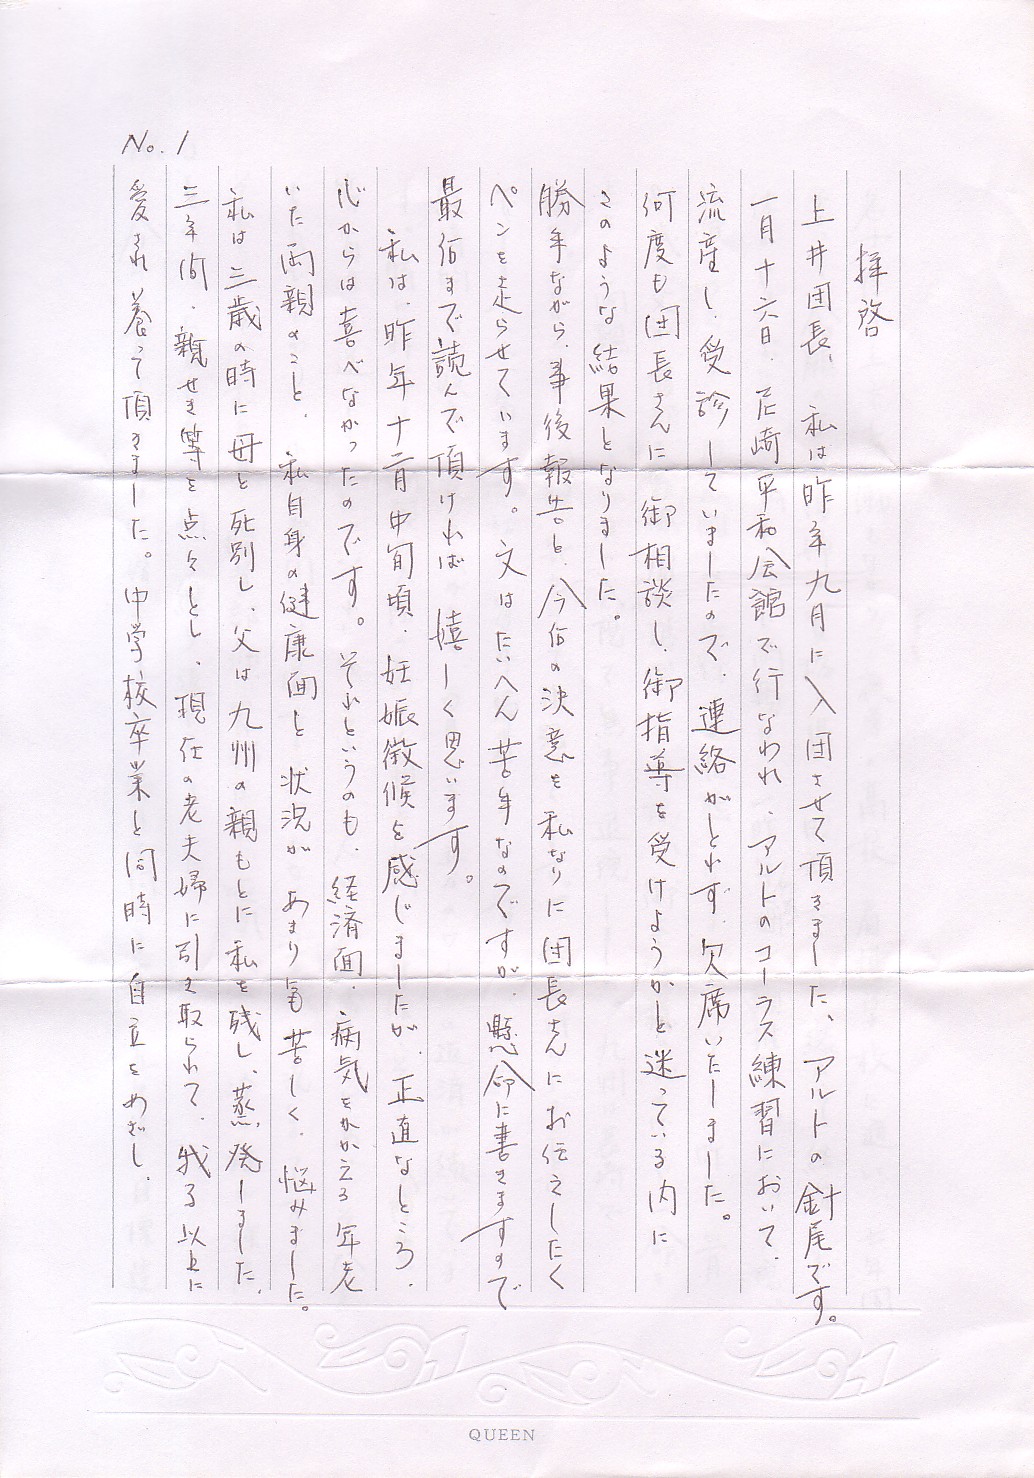 No.1
拝啓
上井団長、私は昨年九月に入団させて頂きました、アルトの針尾です。
一月十六日、尼崎平和会館で行なわれ、アルトのコーラス練習において、
流産し、受診していましたので、連絡がとれず、欠席いたしました。
何度も団長さんに、御相談し、御指導を受けようかと迷っている内に
このような結果となりました。
勝手ながら、事後報告と、今後の決意を私なりに団長さんにお伝えしたく
ペンを走らせています。文はたいへん苦手なのですが、懸命に書きますので
最后まで読んで頂ければ嬉しく思います。
私は、昨年十一月中旬頃、妊娠徴候を感じましたが、正直なところ、
心からは喜べなかったのです。それというのも、経済面、病気をかかえる年老
いた両親のこと、私自身の健康面と状況があまりも苦しく、悩みました。
私は三歳の時に母と死別し、父は九州の親もとに私を残し、蒸発しました。
三年間、親せき等を点々とし、現在の老夫婦に引き取られて、我る以上に
愛され養って頂きました。中学校卒業と同時に自立をめざし、
QUEEN